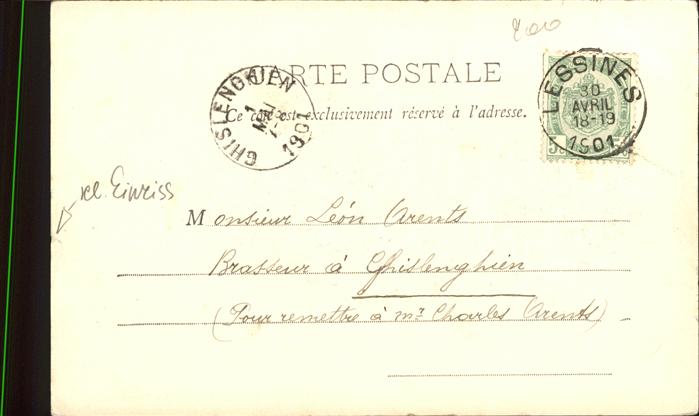 200
CARTE POSTALE
Ce côté est exclusivement réservé à l'adresse.
GHISLENGHIEN
1
MAI
7-8
1901
LESSINES
30
AVRIL
18-19
1901
kl. Einriss
Monsieur Léon Arents
Brasseur à Ghislenghien
(Pour remettre à mr Charles Arents)